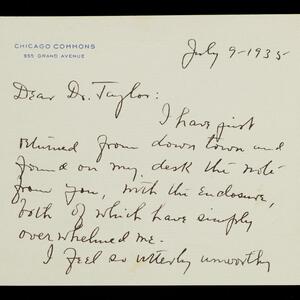 CHICAGO COMMONS
955 GRAND AVENUE
July 9-1935
Dear Dr. Taylor:
I have just
returned from down town and
found on my desk the note
from you, with the enclosure,
both of which have simply
overwhelmed me.
I feel so utterly unworthy